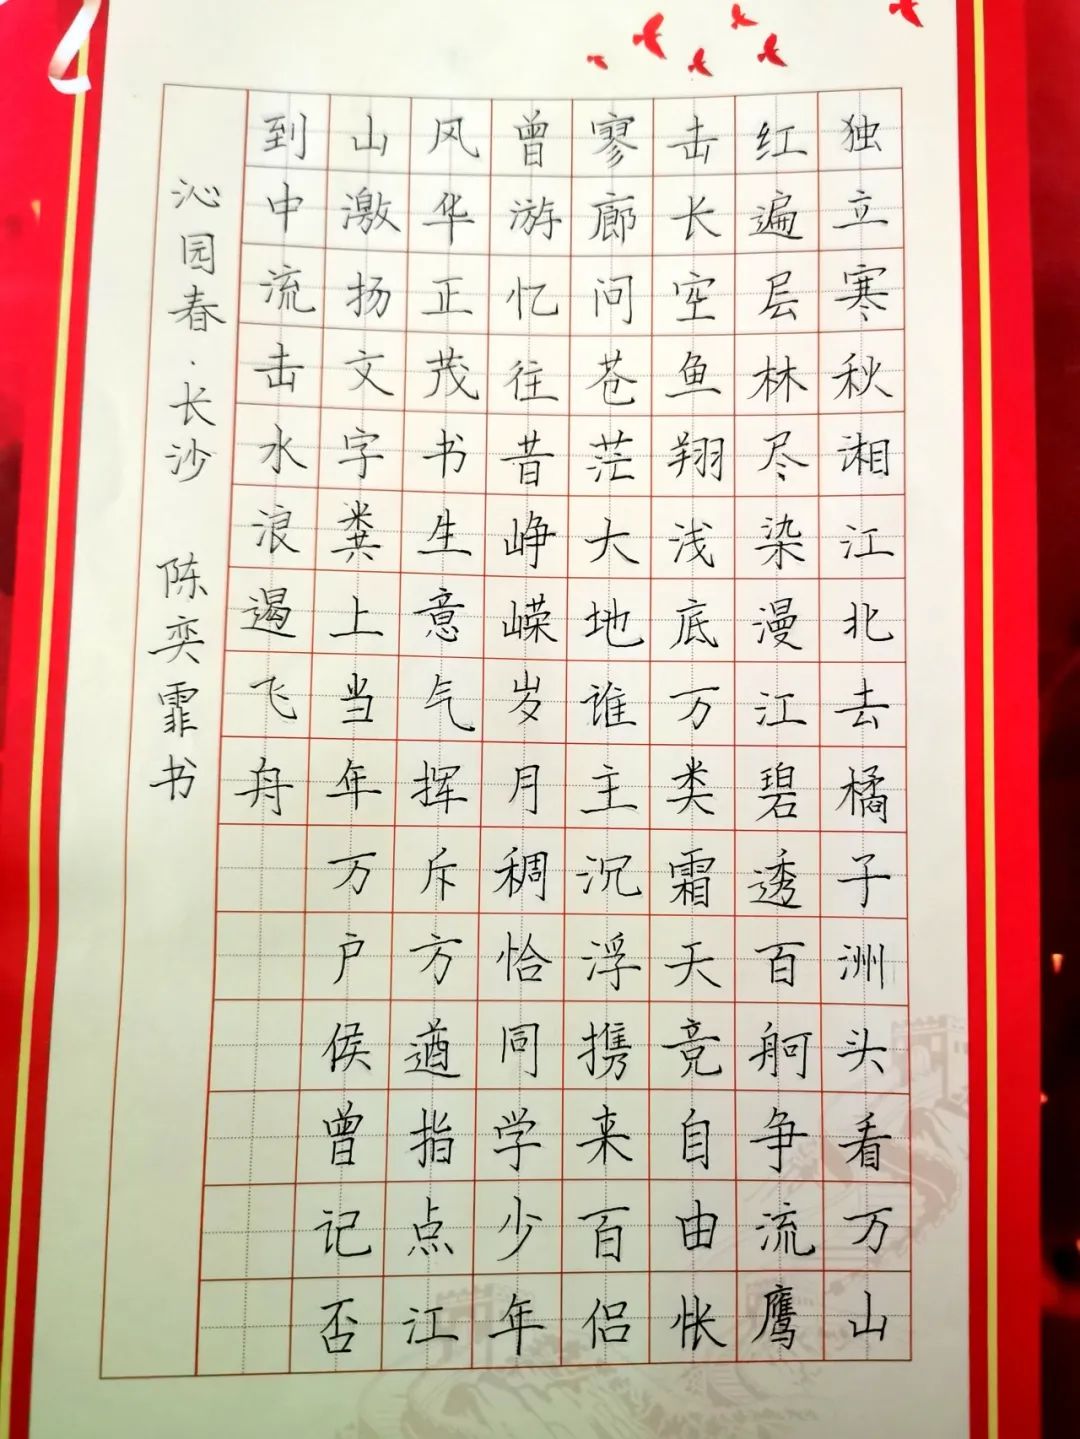 独立寒秋湘江北去橘子洲头看万山
红遍层林尽染漫江碧透百舸争流鹰
击长空鱼翔浅底万类霜天竞自由怅
寥廊问苍茫大地谁主沉浮携来百侣
曾游忆往昔峥嵘岁月稠恰同学少年
风华正茂书生意气挥斥方遒指点江
山激扬文字粪上当年万户侯曾记否
到中流击水浪遏飞舟
沁园春·长沙 陈奕霏书